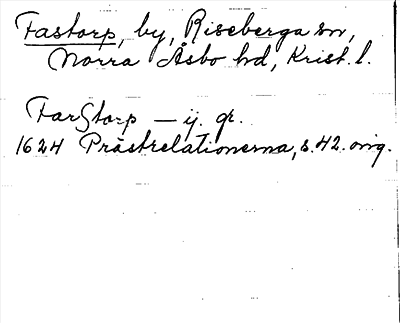 Fastorp, by, Riseberga sn,
Norra Åsbo hd, Krist. l.
FarStorp — ij. gr.
1624 Prästrelationerna, s. 42. orig.